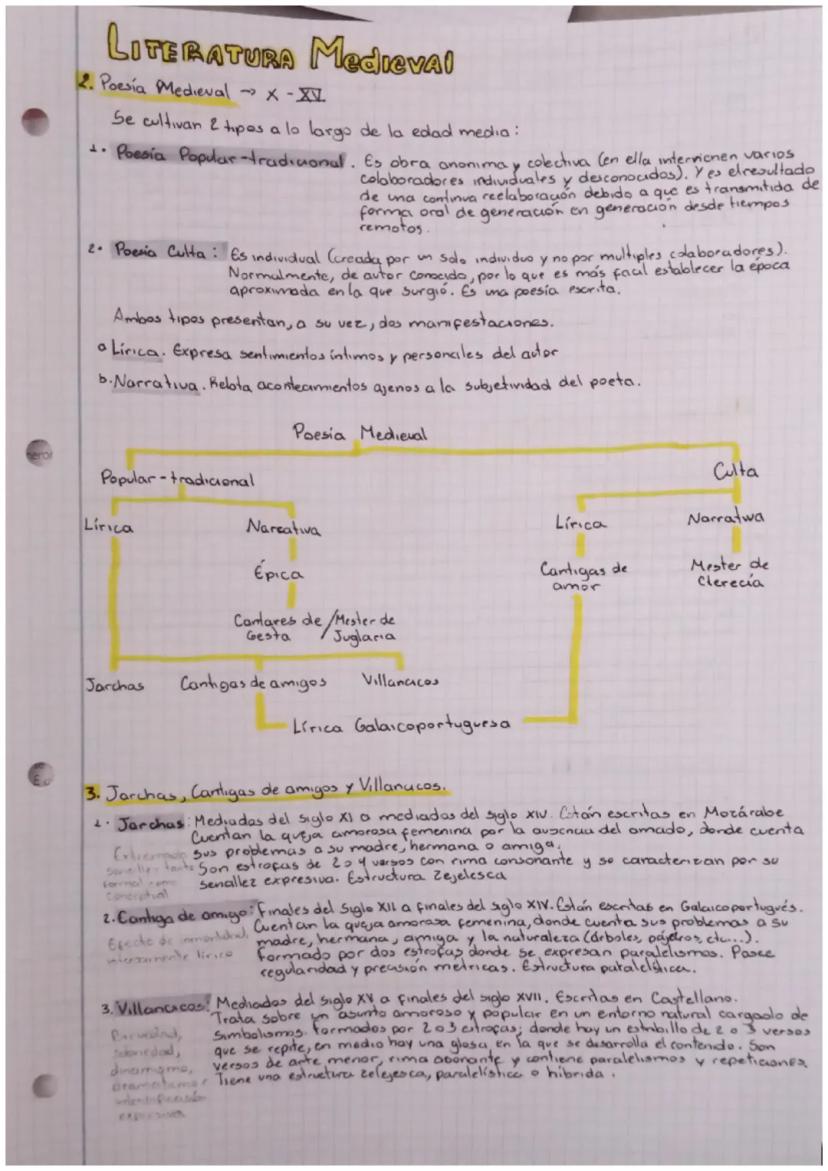 LITERATURA Medieval
2. Poesía Medieval → X - XV
Se cultivan 2 tipos a lo largo de la edad media:
1. Poesía Popular-tradicional. Es obra anonima y colectiva (en ella intervienen varios
colaboradores individuales y desconocidos). Y es el resultado
de una continva reelaboración debido a que es transmitida de
forma oral de generación en generación desde tiempos
remotos.
2. Poesía Culta: Es individual (creada por un solo individuo y no por multiples colaboradores).
Normalmente, de autor conocido, por lo que es más facil establecer la época
aproximada en la que surgió. Es una poesía escrita.
Ambos tipos presentan, a su vez, dos manifestaciones.
a Lírica. Expresa sentimientos íntimos y personales del autor
b. Narrativa. Relata acontecimientos ajenos a la subjetividad del poeta.
Poesía Medieval
Popular-tradicional
Culta
Lírica
Narrativa
Lírica
Narrativa
Épica
Cantigas de
amor
Mester de
Clerecía
Cantares de / Mester de
Gesta Juglaria
Jarchas Cantigas de amigos Villancicos
Lírica Galaicoportuguesa
3. Jarchas, Cantigas de amigos y Villancicos.
1. Jarchas: Mediadas del siglo XI a mediados del siglo XIV. Están escritas en Mozárabe
Cuentan la queja amorosa femenina por la ausencia del amado, donde cuenta
sus problemas a su madre, hermana o amiga.
Son estrofas de 2 o 4 versos con rima consonante y se caracterizan por su
senallez expresiva. Estructura Zejelesca
sencillez tanto
formal como
conceptual
2. Cantiga de amigo: Finales del Siglo XII a finales del siglo XIV. Están escritas en Galaicoportugués.
Cuentan la queja amorosa femenina, donde cuenta sus problemas a su
madre, hermana, amiga y la naturaleza (árboles, pájaros, etc...).
Formado por dos estrofas donde se expresan paralelismos. Posee
regularidad y precisión metricas. Estructura paralelística.
Efecto de inmortalidad,
intensamente lírico
3. Villancicos: Mediados del siglo XV a finales del siglo XVII. Escritas en Castellano.
Trata sobre un asunto amoroso y popular en un entorno natural cargado de
Simbolismos. Formados por 2 o 3 estrofas; donde hay un estribillo de 2 o 3 versos
que se repite, en medio hay una glosa en la que se desarrolla el contenido. Son
versos de arte menor, rima asonante y contiene paralelismos y repeticiones,
Tiene una estructura zelejesca, paralelística o híbrida.
Brevedad,
sobriedad,
dinamismo,
dramatismo
expresiva